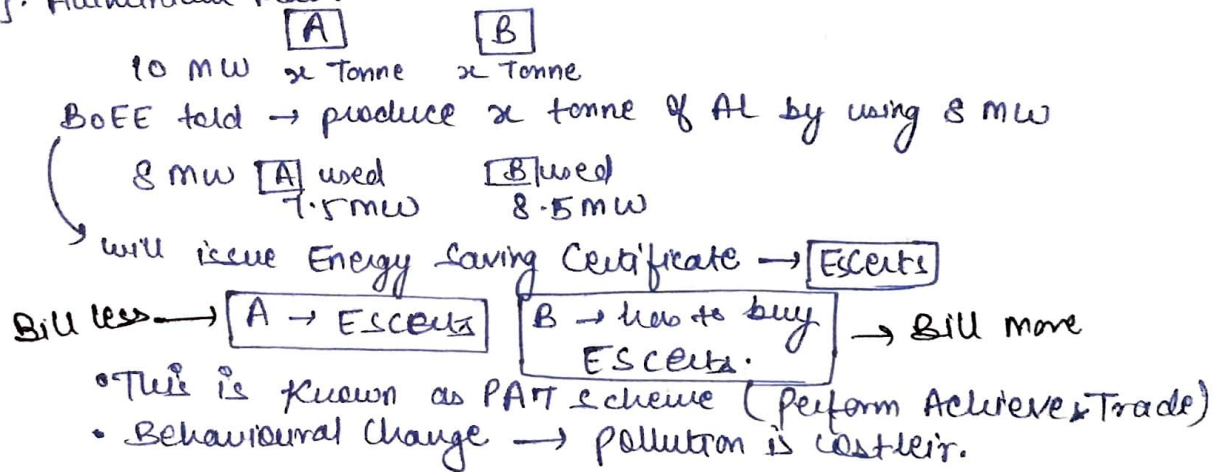 A B
10 MW x Tonne x Tonne
BOEE told → produce x tonne of AL by using 8 MW
8 MW A used B used
7.5 MW 8.5 MW
will issue Energy Saving Certificate → EScerts
Bill less → A → EScerts B → has to buy → Bill more
EScerts.
• This is known as PAT scheme (Perform Achieve & Trade)
• Behavioural Change → pollution is costleir.